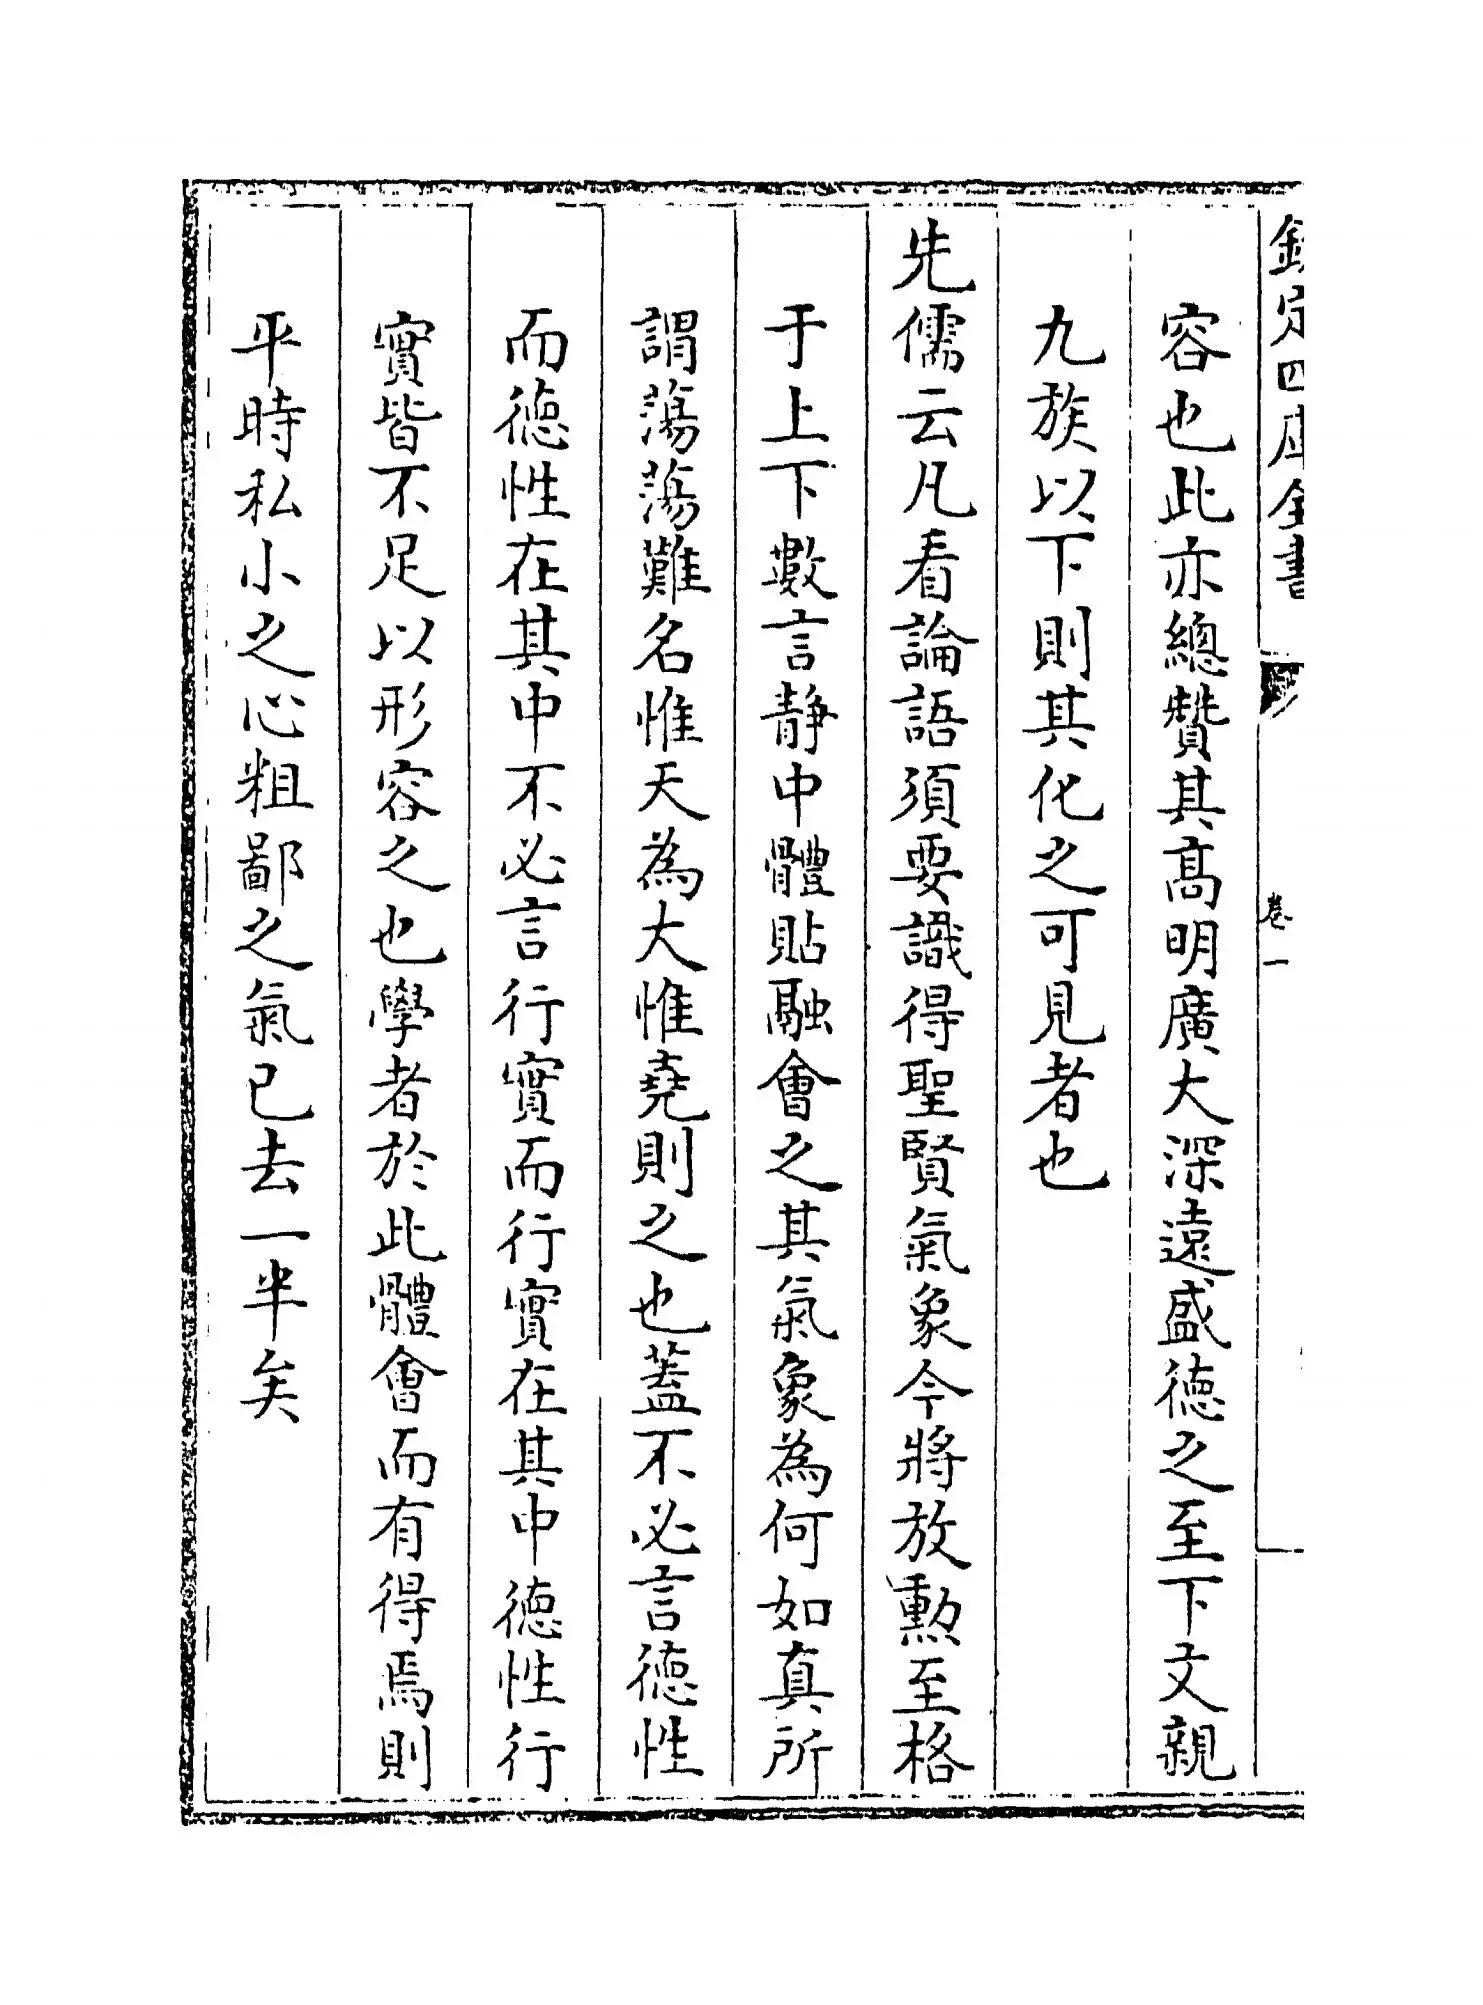 欽定四庫全書
卷一
容也此亦總贊其高明廣大深遠盛德之至下文親
九族以下則其化之可見者也
先儒云凡看論語須要識得聖賢氣象今將放勲至格
于上下數言靜中體貼融會之其氣象為何如真所
謂蕩蕩難名惟天為大惟堯則之也蓋不必言德性
而德性在其中不必言行實而行實在其中德性行
實皆不足以形容之也學者於此體會而有得焉則
平時私小之心粗鄙之氣已去一半矣